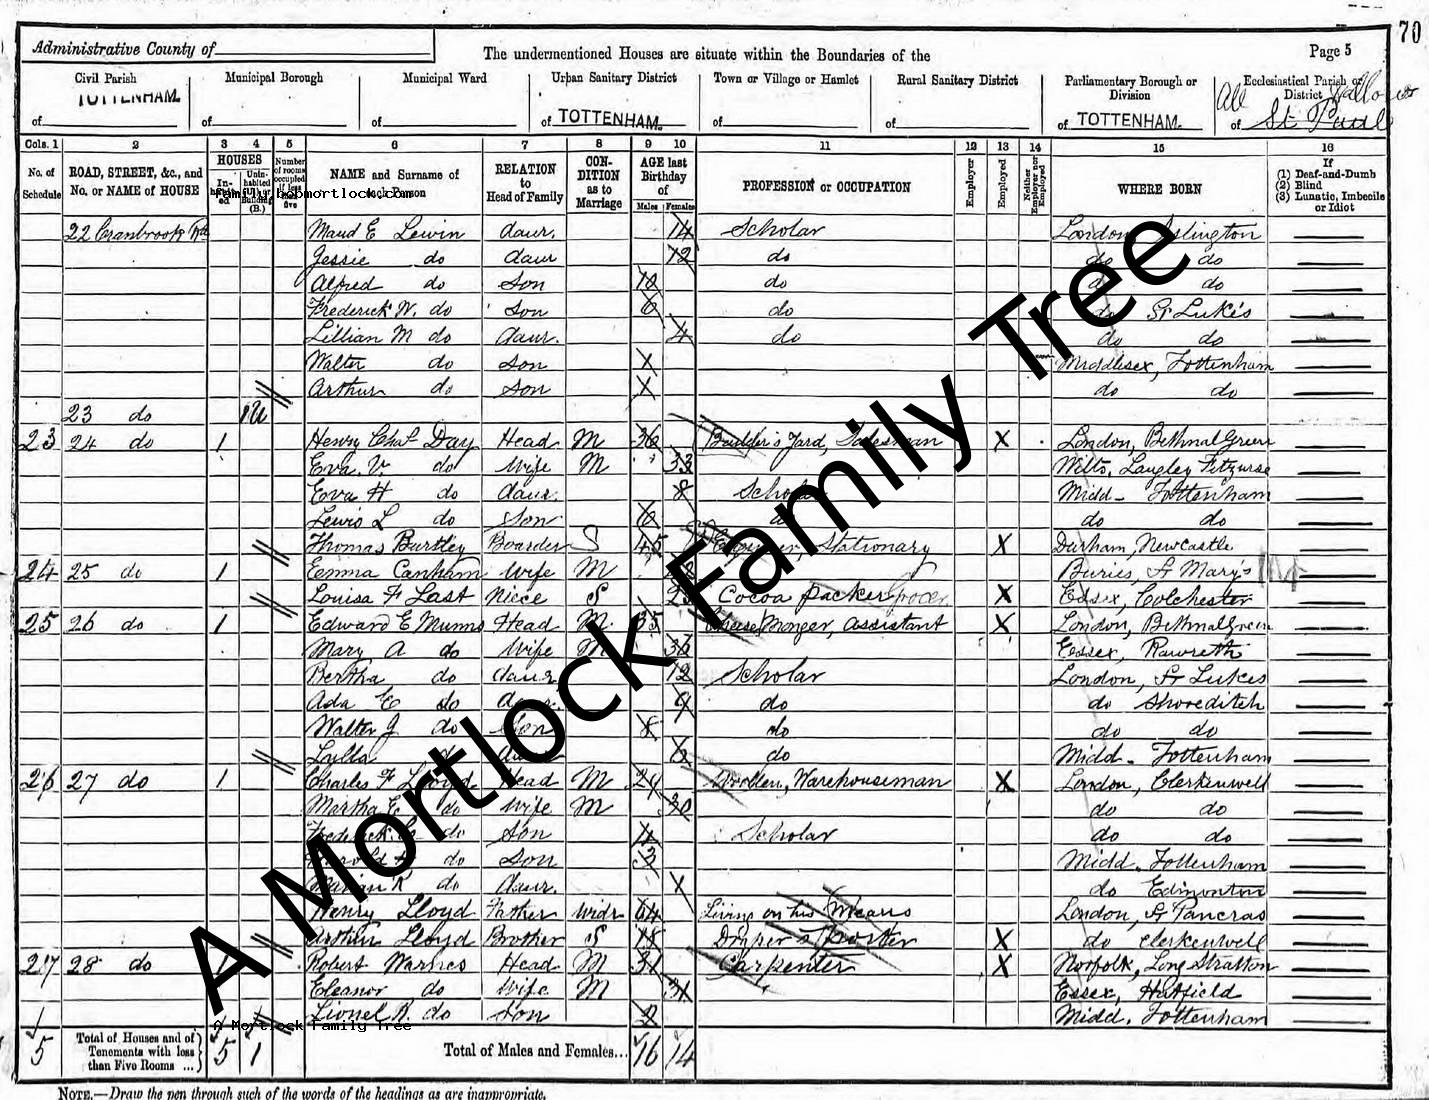 70
Administrative County of
The undermentioned Houses are situate within the Boundaries of the
Page 5
Civil Parish Municipal Borough Municipal Ward Urban Sanitary District Town or Village or Hamlet Rural Sanitary District Parliamentary Borough or Division Ecclesiastical Parish or District
of TOTTENHAM. of of of TOTTENHAM. of of of TOTTENHAM. of All Hallows St Paul
Cols. 1 2 3 4 5 6 7 8 9 10 11 12 13 14 15 16
No. of Schedule ROAD, STREET, &c., and No. or NAME of HOUSE HOUSES In-habited Unin-habited or Building (B.) Number of rooms occupied if less than five NAME and Surname of each Person RELATION to Head of Family CON-DITION as to Marriage AGE last Birthday of Males Females PROFESSION or OCCUPATION Employer Employed Neither Employer nor Employed WHERE BORN If (1) Deaf-and-Dumb (2) Blind (3) Lunatic, Imbecile or Idiot
family.bobmortlock.com
22 Cranbrook Rd Maud E Lewin daur. 14 Scholar London Islington
Jessie do daur 12 do do do
Alfred do Son 10 do do do
Frederick W. do Son 6 do do St Luke's
Lillian M do daur. 4 do do do
Walter do son X Middlesex, Tottenham
Arthur do son X do do
23 do 1U
23 24 do 1 Henry Chas Day Head M 36 Builder's Yard, Salesman X London, Bethnal Green
Eva. V. do Wife M 33 Wilts, Langley Fitzurse
Eva H do daur. 8 Scholar Midd- Tottenham
Lewis L do Son 6 do do do
Thomas Burtley Boarder S 45 Stationary X Durham, Newcastle
24 25 do 1 Emma Canham Wife M St Mary's
Louisa F Last Niece S Cocoa packer Grocer X Essex, Colchester
25 26 do 1 Edward E Munns Head M. 35 Cheese Monger, assistant X London, Bethnal Green
Mary A do Wife M 36 Essex, Rawreth
Bertha do daur 12 Scholar London, St Lukes
Ada E do daur. 9 do do Shoreditch
Walter J do Son 8 do do do
Lylla do daur 6 do Midd- Tottenham
26 27 do 1 Charles F Lloyd Head M 29 Woollen, Warehouseman X London, Clerkenwell
Martha E. do Wife M 30 do do
Frederick do Son 4 Scholar do do
Harold do Son 3 Midd. Tottenham
Marian K do daur. X do Edmonton
Henry Lloyd Father Widr 64 Living on his Means London, St Pancras
Arthur Lloyd Brother S 18 Draper's Porter X do Clerkenwell
27 28 do 1 Robert Warnes Head M 31 Carpenter X Norfolk, Long Stratton
Eleanor do Wife M 31 Essex, Hatfield
Lionel R. do Son 2 Midd. Tottenham
A Mortlock Family Tree
5 Total of Houses and of Tenements with less than Five Rooms ... 5 1 Total of Males and Females... 16 14
NOTE.—Draw the pen through such of the words of the headings as are inappropriate.
A Mortlock Family Tree